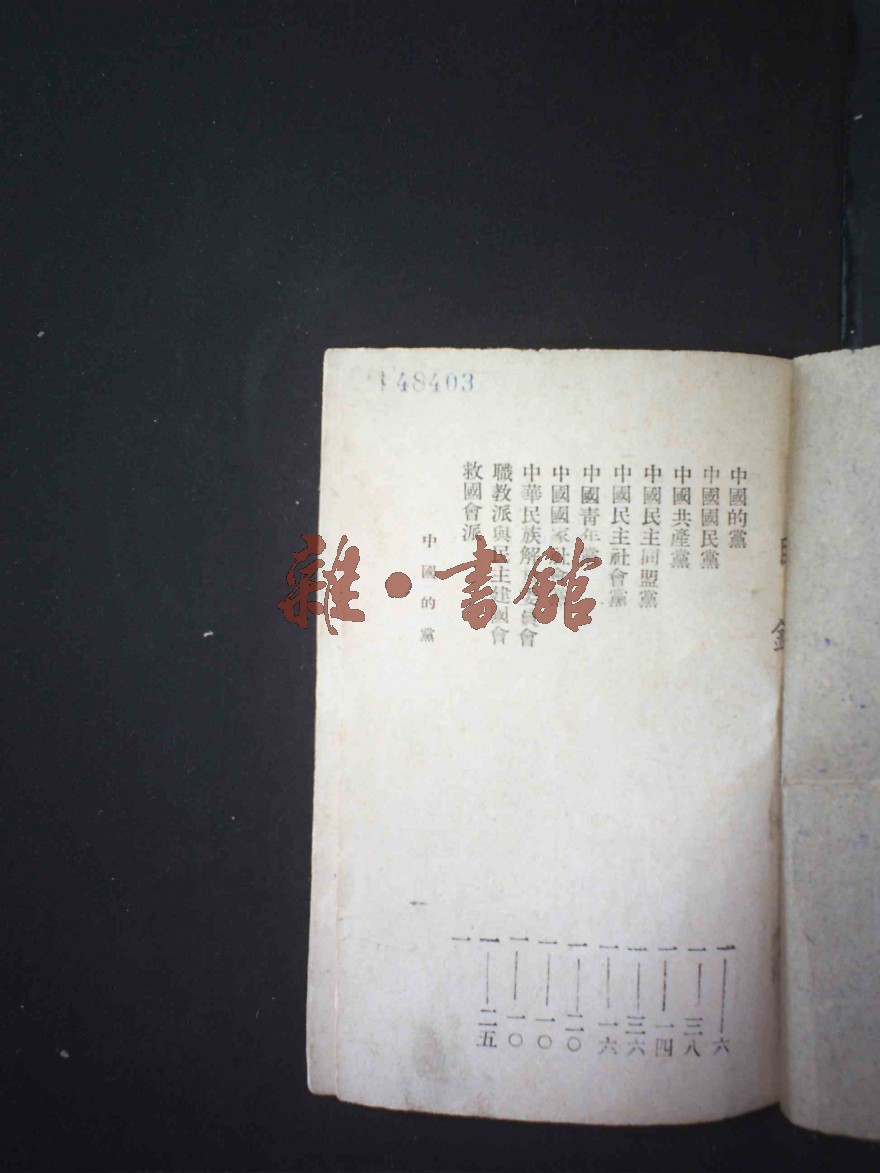 錄
中國的黨 一——六
中國國民黨 一——三八
中國共產黨 一——一四
中國民主同盟黨 一——三六
中國民主社會黨 一——一六
中國青年黨 一——二〇
中國國家社 一——一〇
中華民族解 委員會 一——一〇
職教派與民主建國會 一——二五
救國會派 一
中國的黨
一
48403
雜·書館